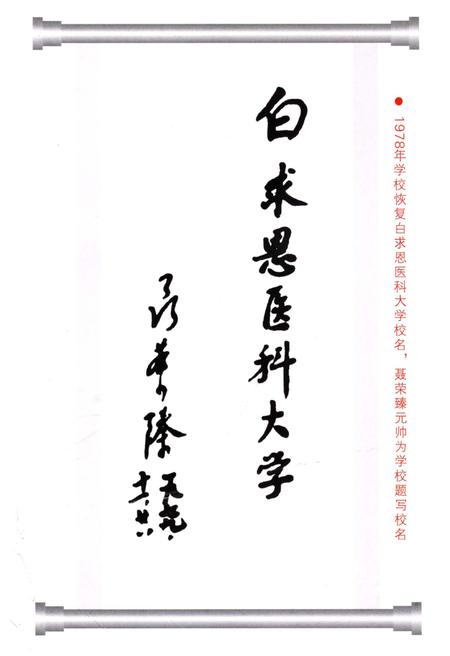 ● 1978年学校恢复白求恩医科大学校名，聂荣臻元帅为学校题写校名
白求恩医科大学
聂荣臻